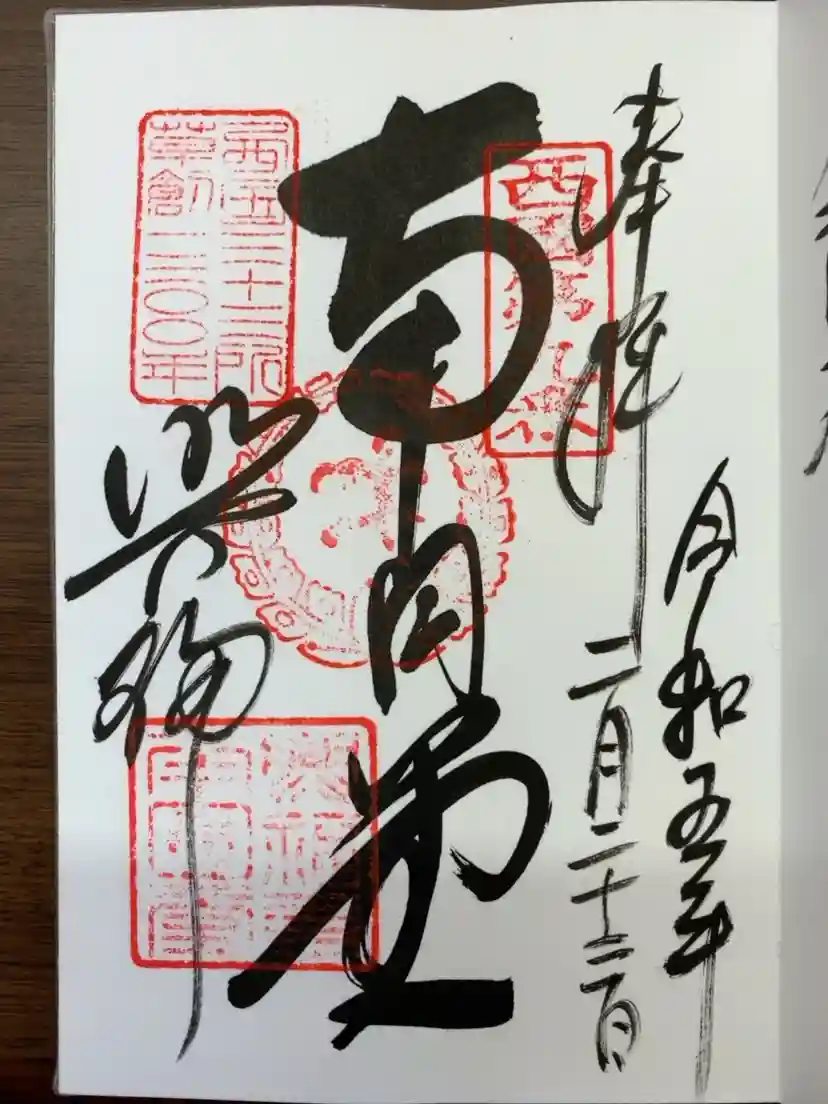 奉拝
令和五年
二月二十二日
西国第九番
南円堂
西国三十三所
草創一三〇〇年
興福寺